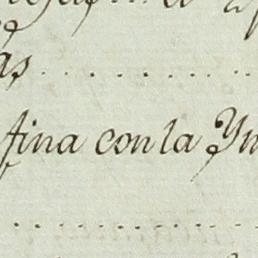 as
fina con la Yn